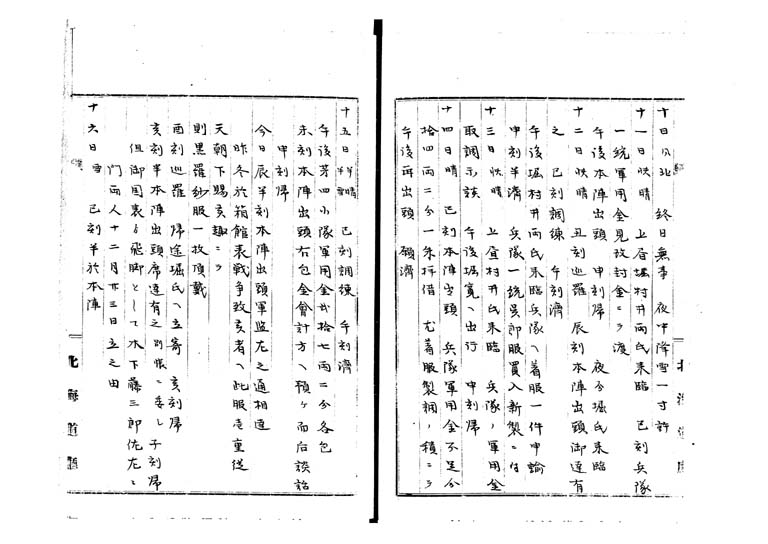 十日 風北 終日無事 夜中降雪一寸許
十一日 快晴 上昼堀村井両氏来臨 已刻兵隊
一統軍用金見改封金ニ而渡
午後本陣出頭 申刻帰 夜分堀氏来臨
十二日 快晴 丑刻巡羅 辰刻本陣出頭御達有
之 已刻調練 午刻済
午後堀村井両氏来臨兵隊ヘ着服一件申諭
申刻半済 兵隊一統 服買入新製ニ付
十三日 快晴 上昼村井氏来臨 兵隊ノ軍用金
取調示談 午後堀寛ヘ出行 申刻帰
十四日 晴 已刻本陣出頭 兵隊軍用金不足分
拾四両二分一朱拝借 尤着服製調ノ積ニ而
午後再出頭 願済
十五日 半晴 已刻調練 午刻済
午後第四小隊軍用金弐拾七両二分各包
未刻本陣出頭右包金会計方ヘ預ケ而后談話
申刻帰
今日辰半刻本陣出頭軍監左之通相達
昨冬於箱館表戦争致候者ヘ此服壱重従
天朝下賜候趣ニ而
則黒羅紗服一枚頂戴
酉刻巡羅 帰途堀氏ヘ立寄 亥刻帰
亥刻半本陣出頭席達有之 出帳ニ委し 子刻帰
但御国表ゟ飛脚として木下藤三郎佐左ニ
門両人十二月廿三日立之由
十六日 雪 已刻半於本陣
北海道庁
北海道庁